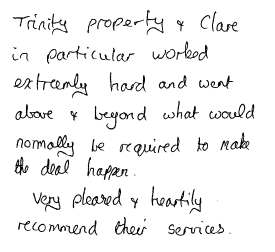 Trinity property & Clare
in particular worked
extreemly hard and went
above & beyond what would
normally be required to make
the deal happen.
Very pleased & heartily
recommend their services.